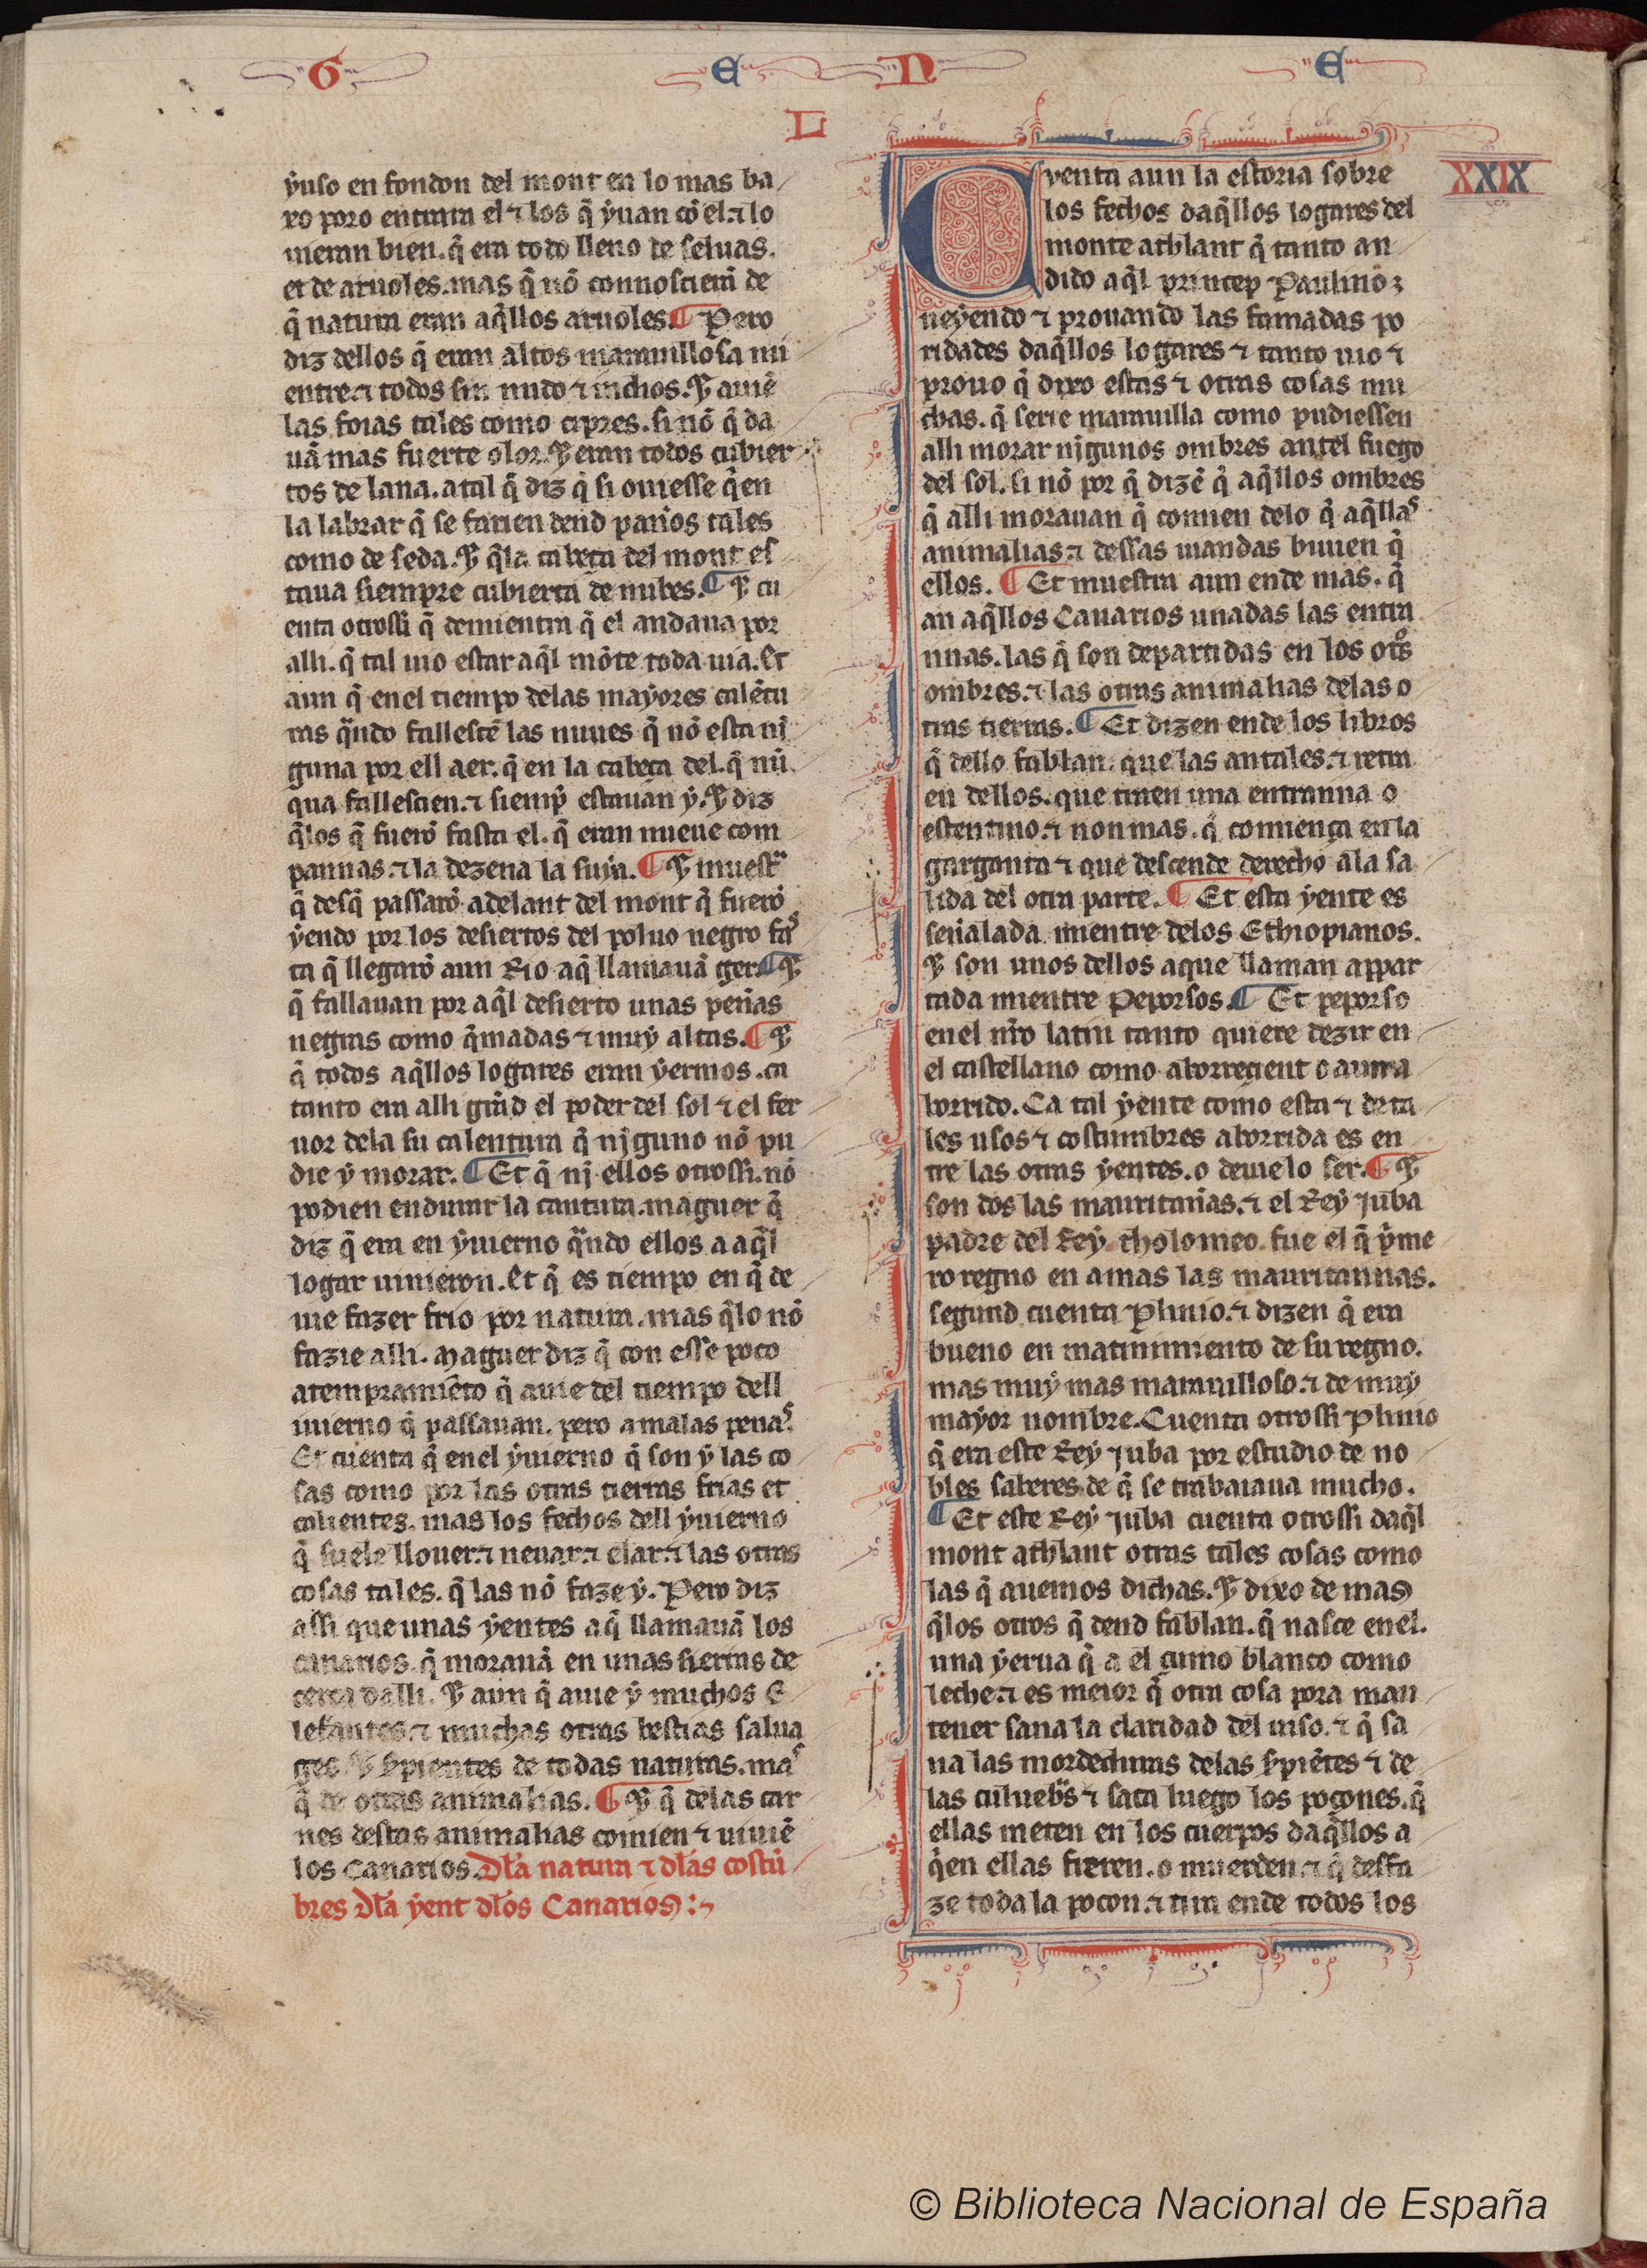 G E N E
L
ẏuso en fondon del mont en lo mas ba
xo poro entraua el ⁊ los q̃ ẏuan cõ el. ⁊ lo
uieran bien. q̃ era todo lleno de seluas.
et de aruoles. mas q̃ nõ connoscierã de
q̃ natura eran aq̃llos aruoles. ¶ Pero
diz dellos q̃ eran altos marauillosa mi
entre. ⁊ todos sin nudo ⁊ inchos. ⁊ auiẽ
las foias tales como cipres. si nõ q̃ da
uã mas fuerte olor. ⁊ eran todos cubier
tos de lana. atal q̃ diz q̃ si ouiesse q̃en
la labrar q̃ se farien dend pannos tales
como de seda. ⁊ q̃la cabeça del mont es
taua siempre cubierta de nubes. ¶ ⁊ cu
enta otrossi q̃ demientra q̃ el andaua por
alli. q̃ tal uio estar aq̃l mõte toda uia. Et
aun q̃ enel tiempo delas maẏores calẽtu
ras q̃ndo fallescẽ las nuues q̃ nõ esta nĩ
guna por ell aer. q̃ en la cabeça del. q̃ nũ
qua fallescien. ⁊ siemp̃ estauan ẏ. ⁊ diz
q̃los q̃ fuerõ fasta el. q̃ eran nueue com
pannas. ⁊ la dezena la suẏa. ¶ ⁊ muestra
q̃ desq̃ passarõ adelant del mont q̃ fuerõ
ẏendo por los desiertos del poluo negro fas
ta q̃ llegarõ aun Rio aq̃ llamauã ger. ¶ ⁊
q̃ fallauan por aq̃l desierto unas peñas
negras como q̃madas ⁊ muẏ altas. ¶ ⁊
q̃ todos aq̃llos logares eran ẏermos. ca
tanto era alli grãd el poder del sol ⁊ el fer
uor dela su calentura q̃ nĩguno nõ pu
die ẏ morar. ¶ Et q̃ nj ellos otrossi. nõ
podien endurar la cautura. maguer q̃
diz q̃ era en ẏuierno q̃ndo ellos a aq̃l
logar uinieron. Et q̃ es tiempo en q̃ de
ue fazer frio por natura. mas q̃lo nõ
fazie alli. Maguer diz q̃ con esse poco
atempramiẽto q̃ auie del tiempo dell
iuierno q̃ passauan. pero amalas penas.
Et cuenta q̃ enel ẏuierno q̃ son ẏ las co
sas como por las otras tierras frias et
calientes. mas los fechos dell ẏuierno
q̃ suele llouer. ⁊ neuar. ⁊ elar. ⁊ las otras
cosas tales. q̃ las nõ faze ẏ. Pero diz
assi que unas ẏentes aq̃ llamauã los
canarios. q̃ morauã en unas sierras de
cerca dalli. ⁊ aun q̃ auie ẏ muchos E
lefantes. ⁊ muchas otras bestias salua
ges ⁊ s̃pientes de todas naturas. mas
q̃ de otras animalias. ¶ ⁊ q̃ delas car
nes destas animalias comien ⁊ uiuiẽ
los Canarios. Dl̃a natura ⁊ dl̃as costũ
bres dl̃a ẏent dl̃os Canarios:~
XXIX
Cventa aun la estoria sobre
los fechos daq̃llos logares del
monte athlant q̃ tanto an
dido aq̃l princep Paulino;
ueẏendo ⁊ prouando las famadas po
ridades daq̃llos logares ⁊ tanto uio ⁊
prouo q̃ dixo estas ⁊ otras cosas mu
chas. q̃ serie marauilla como pudiessen
alli morar nĩgunos ombres antel fuego
del sol. si nõ por q̃ dizẽ q̃ aq̃llos ombres
q̃ alli morauan q̃ comien delo q̃ aq̃llas
animalias. ⁊ dessas uiandas biuien q̃
ellos. ¶ Et muestra aun ende mas. q̃
an aq̃llos Canarios unadas las entra
nnas. las q̃ son departidas en los otros
ombres. ⁊ las otras animalias delas o
tras tierras. ¶ Et dizen ende los libros
q̃ dello fablan. que las antales. ⁊ retra
en dellos. que traen una entranna o
estentino. ⁊ non mas. q̃ comiença en la
garganta ⁊ que descende derecho ala sa
lida del otra parte. ¶ Et esta ẏente es
señalada mientre delos Ethiopianos.
⁊ son unos dellos aque llaman appar
tada mientre Peporsos. ¶ Et peporso
enel nr̃o latin tanto quiere dezir en
el castellano como aborrecient o aurra
borrido. Ca tal ẏente como esta ⁊ de ta
les usos ⁊ costumbres aborrida es en
tre las otras ẏentes. o deuelo ser. ¶ ⁊
son dos las mauritanias. ⁊ el Reẏ Juba
padre del Reẏ tholomeo fue el q̃ p̃me
ro regno en amas las mauritannas.
segund cuenta Plinio. ⁊ dizen q̃ era
bueno en mantinimiento de su regno.
mas muẏ mas marauilloso. ⁊ de muẏ
maẏor nombre. Cuenta otrossi Plinio
q̃ era este Reẏ Juba por estudio de no
bles saberes de q̃ se trabaiaua mucho.
¶ Et este Reẏ Juba cuenta otrossi daq̃l
mont athlant otras tales cosas como
las q̃ auemos dichas. ⁊ dixo de mas
q̃los otros q̃ dend fablan. q̃ nasce enel.
una ẏerua q̃ a el çumo blanco como
leche. ⁊ es meior q̃ otra cosa pora man
tener sana la claridad del uiso. ⁊ q̃ sa
na las mordeduras delas s̃piẽtes ⁊ de
las culuebras ⁊ saca luego los poçones. q̃
ellas meten en los cuerpos daq̃llos a
q̃en ellas fieren. o muerden. ⁊ q̃ desfa
ze toda la poçon. ⁊ tira ende todos los
© Biblioteca Nacional de España